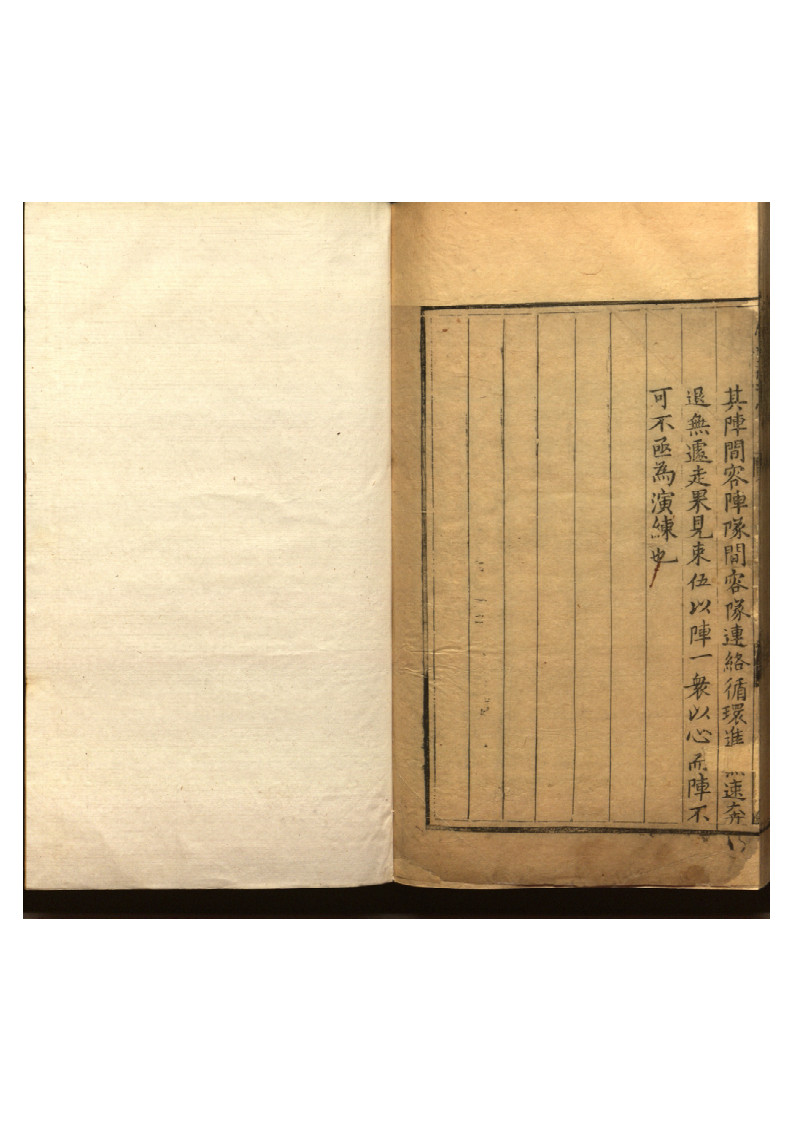 其陣間容陣隊間容隊連絡循環進無速奔
退無遽走果見束伍以陣一衆以心而陣不
可不亟為演練也